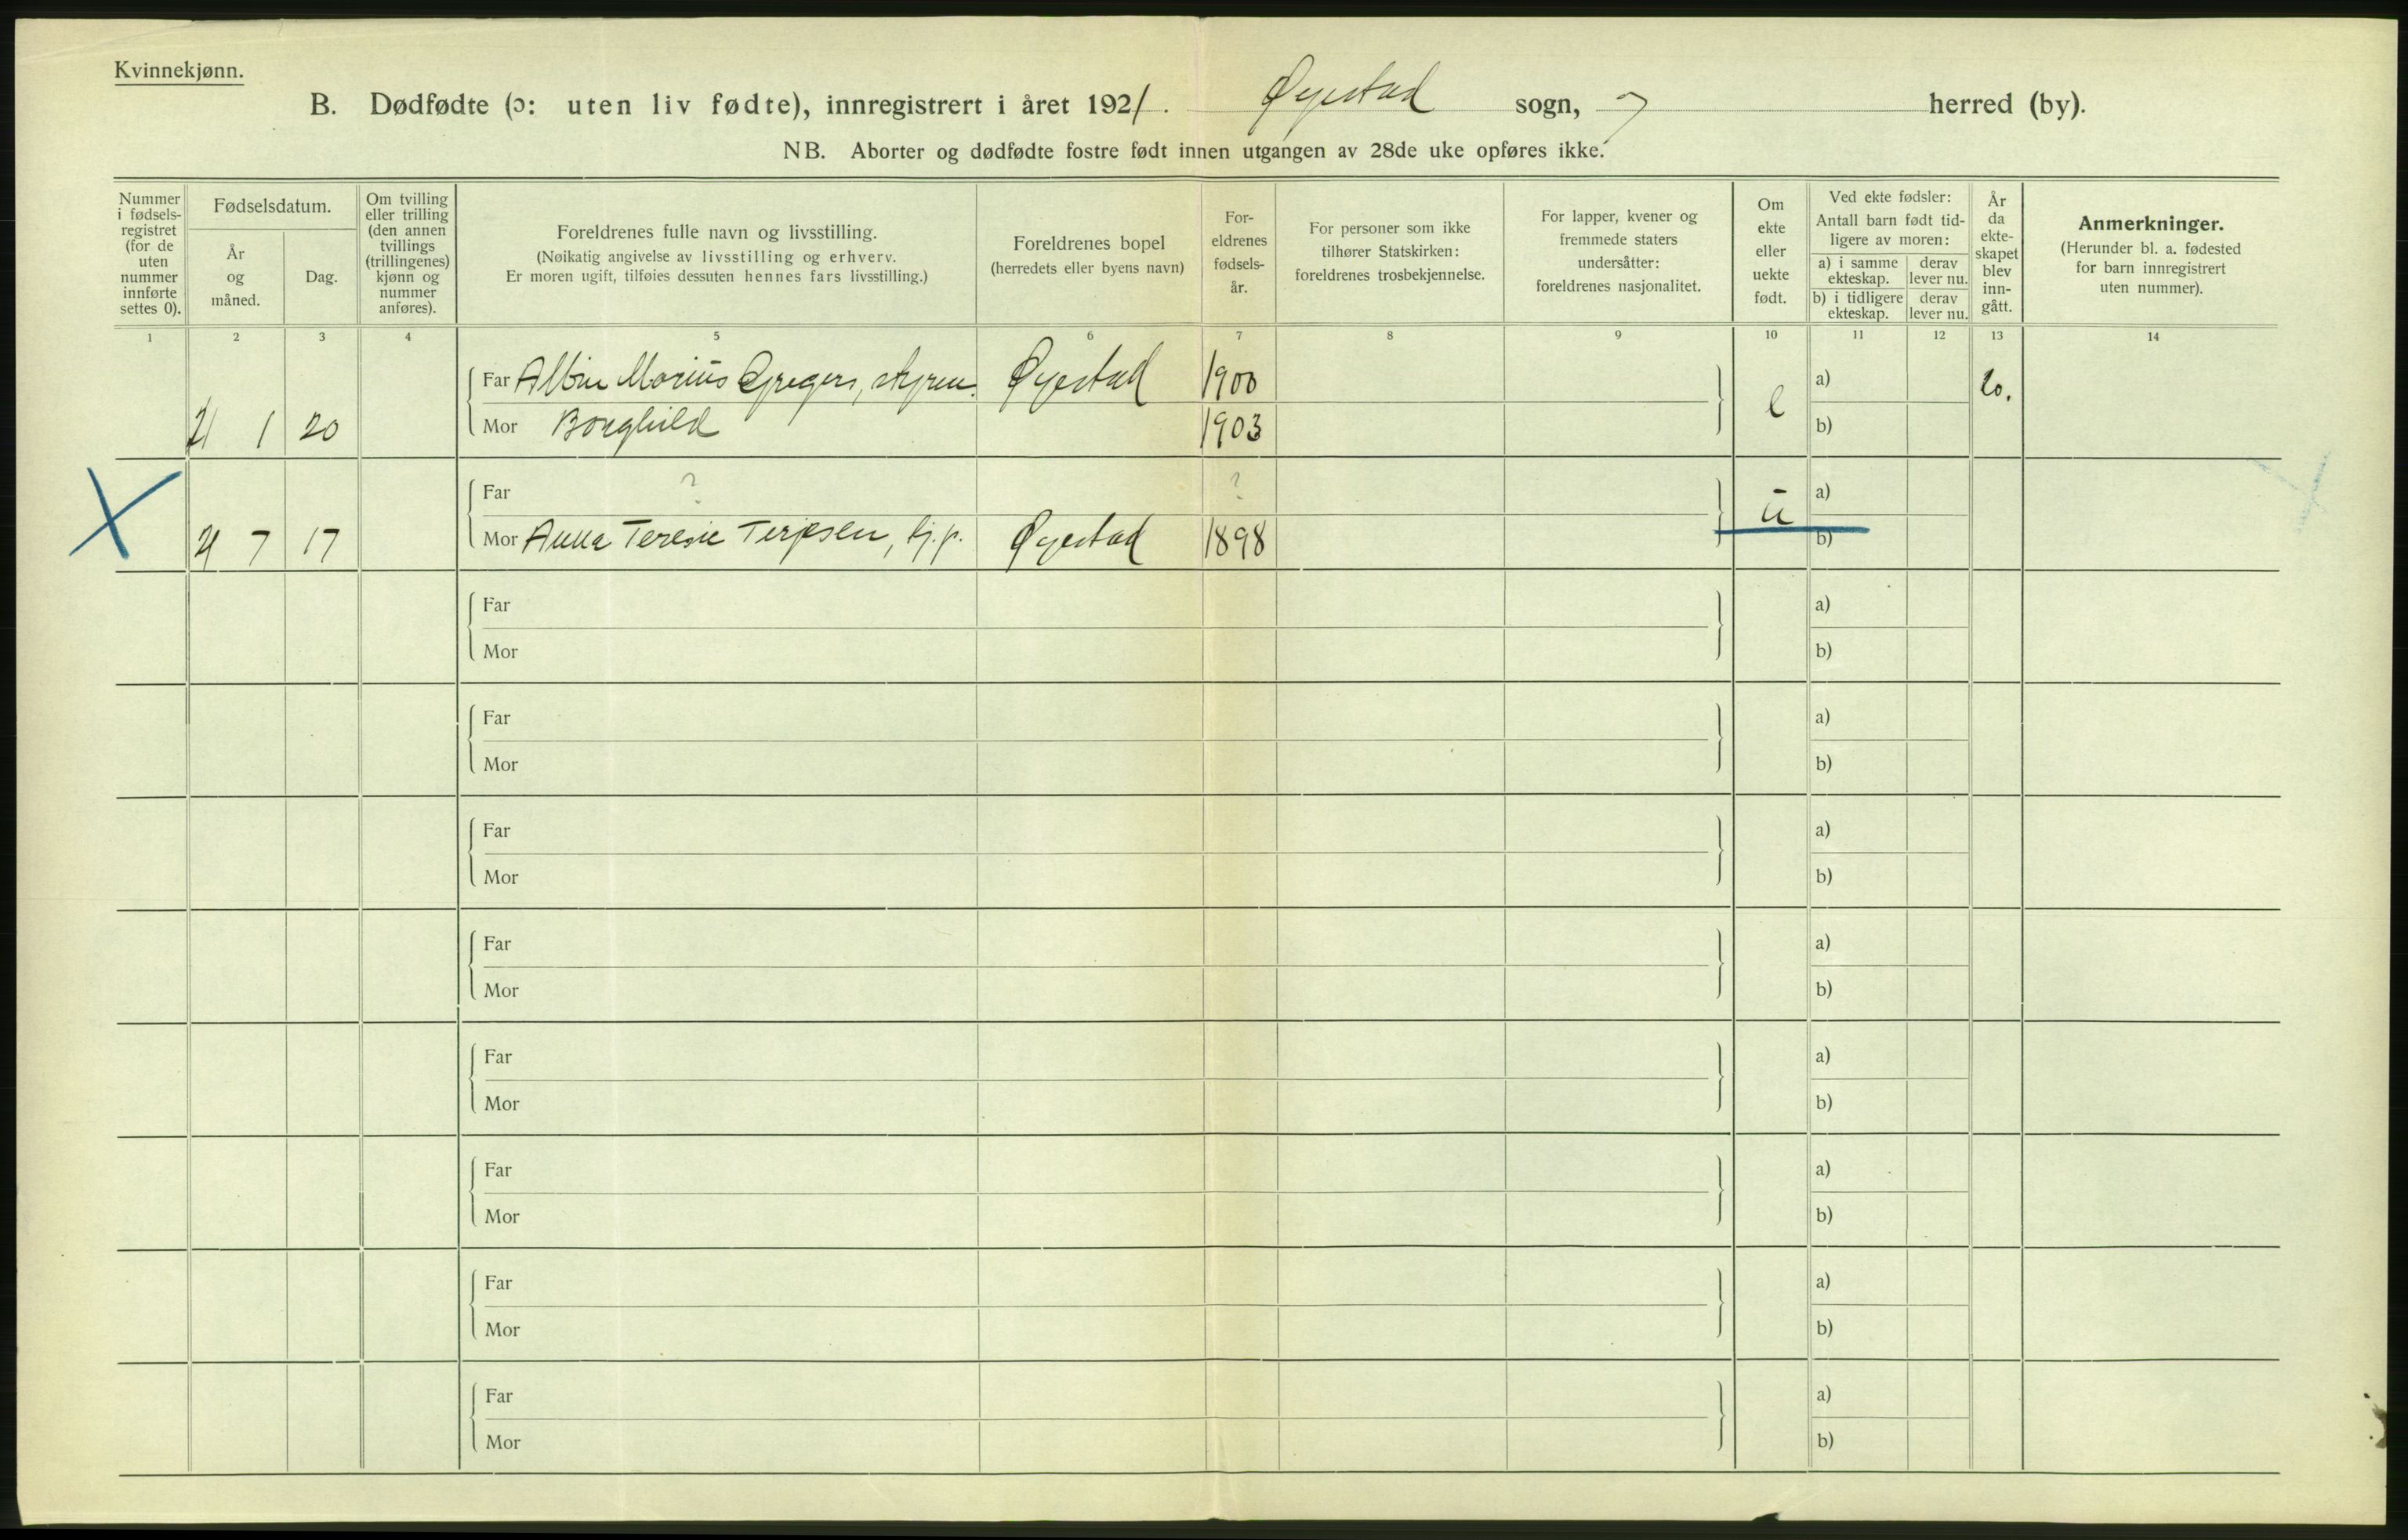 Kvinnekjønn.
B. Dødfødte (ɔ: uten liv fødte), innregistrert i året 1921. Øyestad sogn, herred (by).
NB. Aborter og dødfødte fostre født innen utgangen av 28de uke opføres ikke.
Nummer i fødsels-registret (for de uten nummer innførte settes 0).
Fødselsdatum.
År og måned.
Dag.
Om tvilling eller trilling (den annen tvillings (trillingenes) kjønn og nummer anføres).
Foreldrenes fulle navn og livsstilling.
(Nøikatig angivelse av livsstilling og erhverv.
Er moren ugift, tilføies dessuten hennes fars livsstilling.)
Foreldrenes bopel
(herredets eller byens navn)
For-eldrenes fødsels-år.
For personer som ikke tilhører Statskirken: foreldrenes trosbekjennelse.
For lapper, kvener og fremmede staters undersåtter: foreldrenes nasjonalitet.
Om ekte eller uekte født.
Ved ekte fødsler:
Antall barn født tid-ligere av moren:
a) i samme ekteskap. derav lever nu.
b) i tidligere ekteskap. derav lever nu.
År da ekte-skapet blev inn-gått.
Anmerkninger.
(Herunder bl. a. fødested for barn innregistrert uten nummer).
1 2 3 4 5 6 7 8 9 10 11 12 13 14
Far Albin Marius Gregers, Øyestad 1900 a) 20.
21 1 20 Mor Borghild 1903 e b)
Far ? ? a)
21 7 17 Mor Anna Teresie Terjesen, tj.p. Øyestad 1898 u b)
Far a)
Mor b)
Far a)
Mor b)
Far a)
Mor b)
Far a)
Mor b)
Far a)
Mor b)
Far a)
Mor b)
Far a)
Mor b)
Far a)
Mor b)